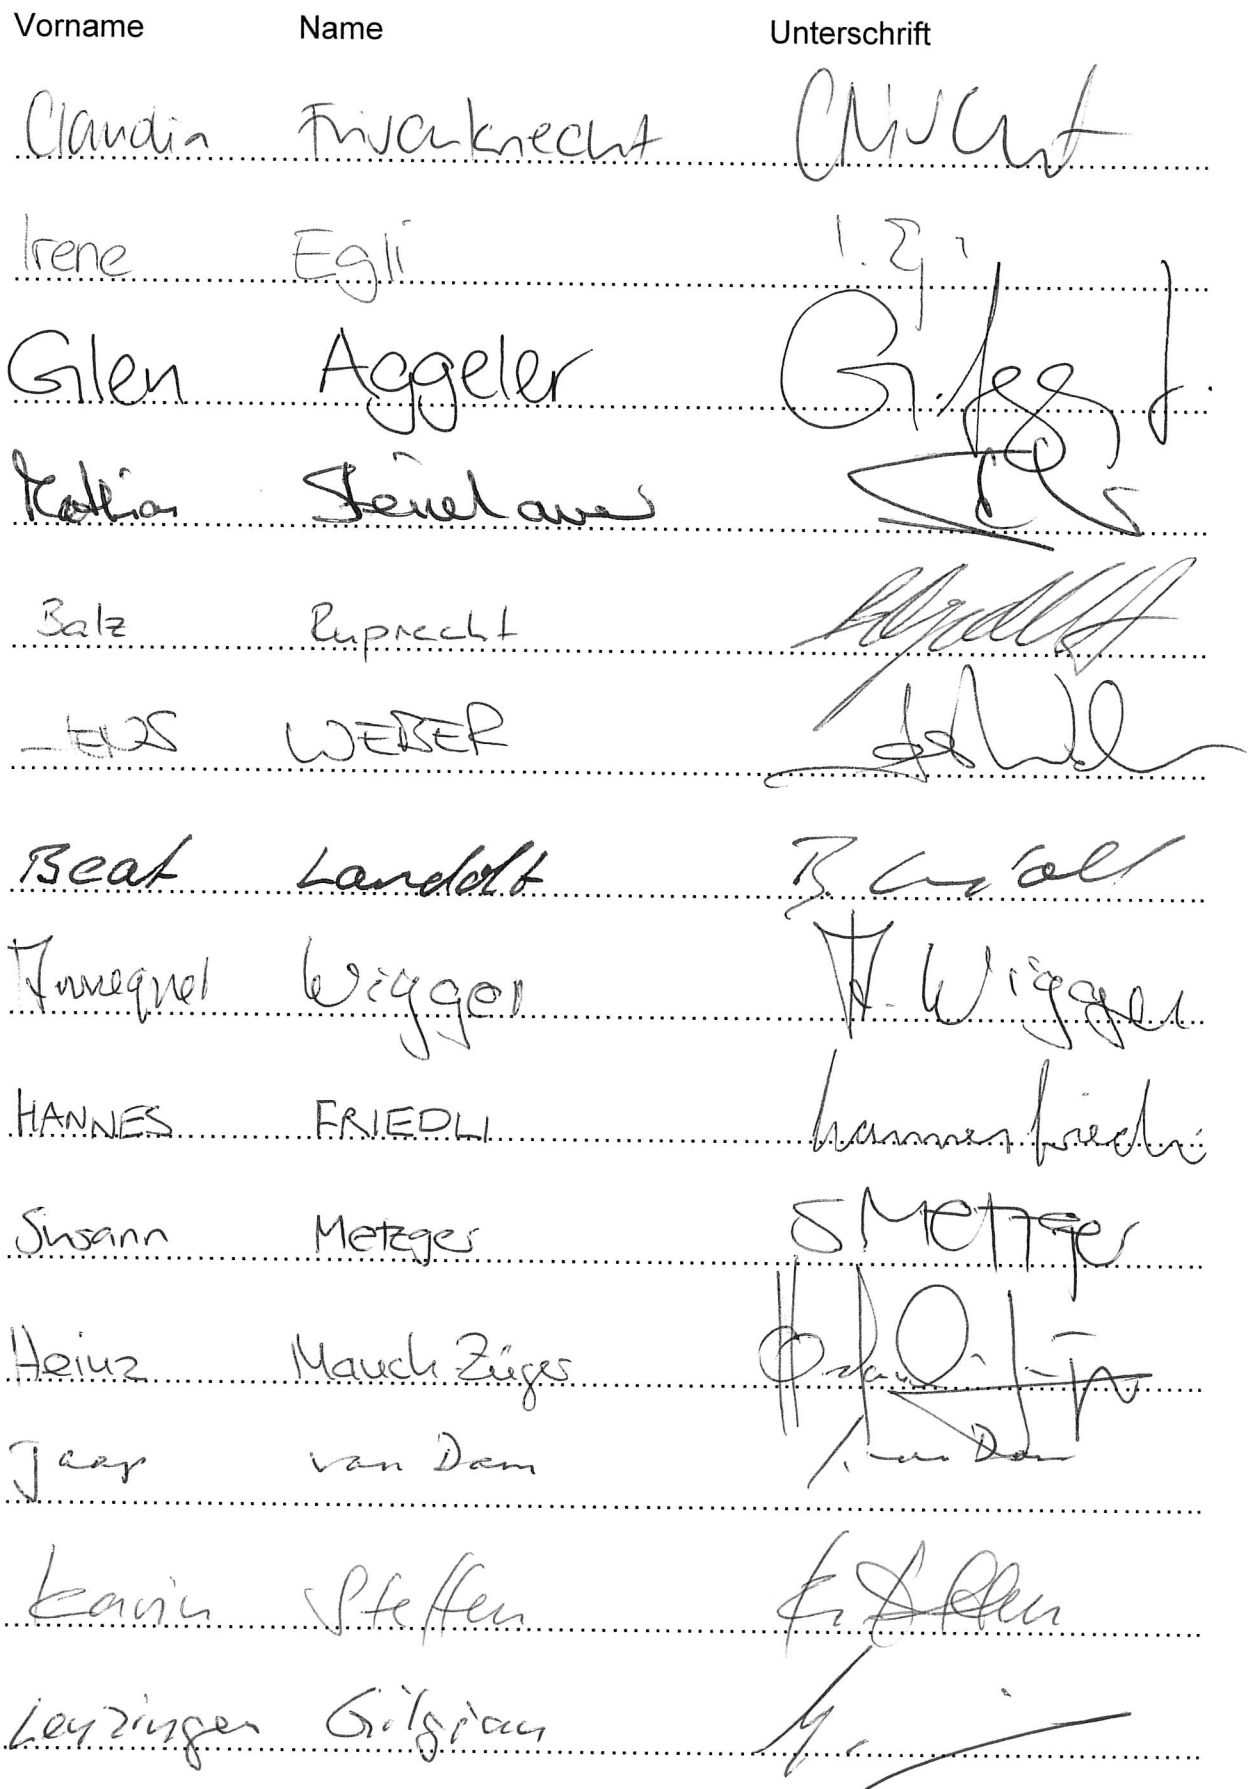 Vorname Name Unterschrift
Claudia Frischknecht
Irene Egli I. Egli
Glen Aggeler
Mathias
Balz Ruprecht
WEBER
Beat Landolt B. Landolt
Wigger A. Wigger
HANNES FRIEDLI hannes friedli
Susann Metzger S Metzger
Heinz Mauch Züger
Jaap van Dam J. van Dam
Karin Steffen K. Steffen
Leuzinger Gilgian